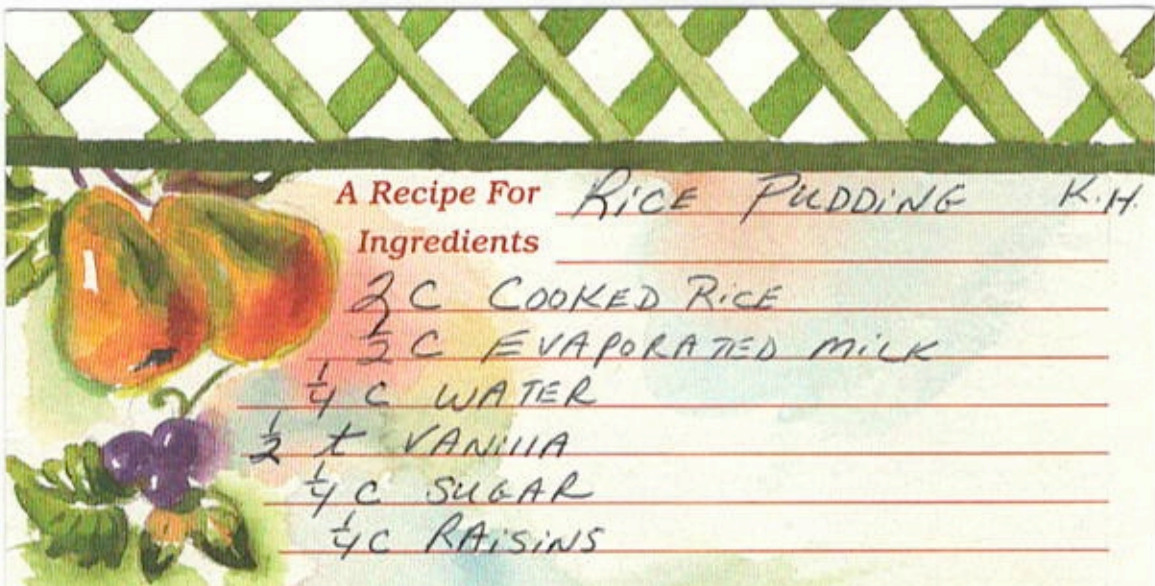 A Recipe For RiCE PUDDiNG K.H.
Ingredients
2 C COOKED RiCE
1/2 C EVAPORATED MiLK
1/4 C WATER
1/2 t VANillA
1/4 C SUGAR
1/4 C RAiSiNS